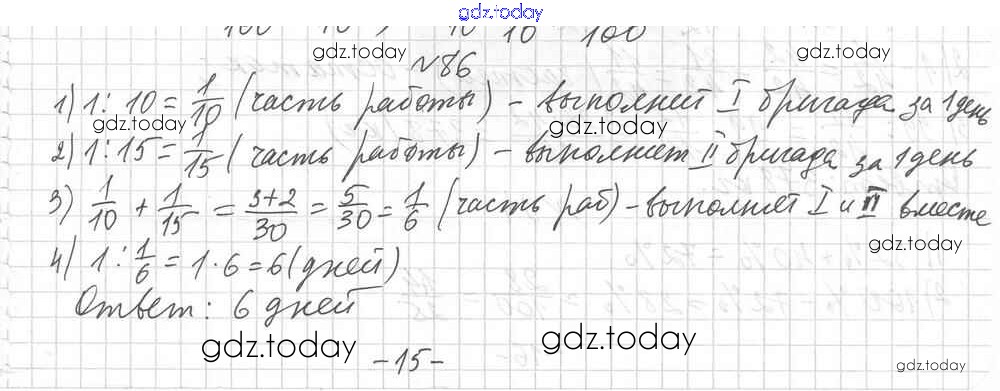 gdz.today
100 10 10 10 100
gdz.today gdz.today
№86
1) 1 : 10 = 1/10 (часть работы) – выполняет I бригада за 1 день
gdz.today gdz.today
2) 1 : 15 = 1/15 (часть работы) – выполняет II бригада за 1 день
3) 1/10 + 1/15 = 3+2/30 = 5/30 = 1/6 (часть раб) – выполняет I и II вместе
gdz.today
4) 1 : 1/6 = 1 · 6 = 6 (дней)
Ответ: 6 дней
gdz.today gdz.today
–15–
gdz.today